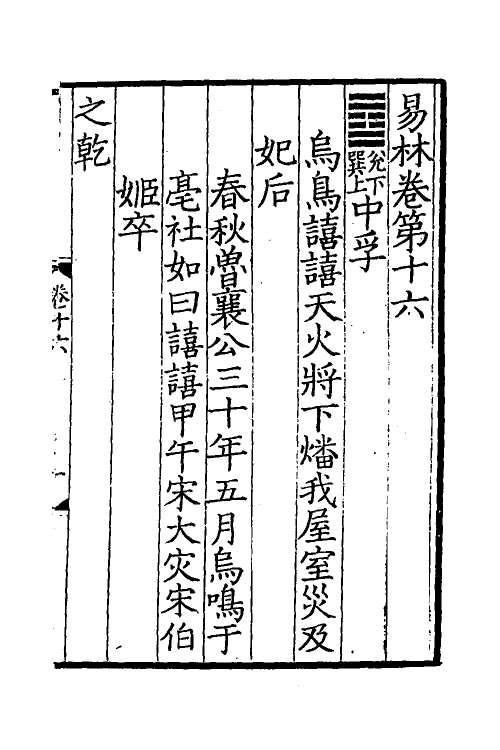 易林卷第十六
䷼兌下巽上中孚
烏鳥譆譆天火將下燔我屋室災及
妃后
春秋魯襄公三十年五月烏鳴于
亳社如曰譆譆甲午宋大灾宋伯
姬卒
之乾
卷十六